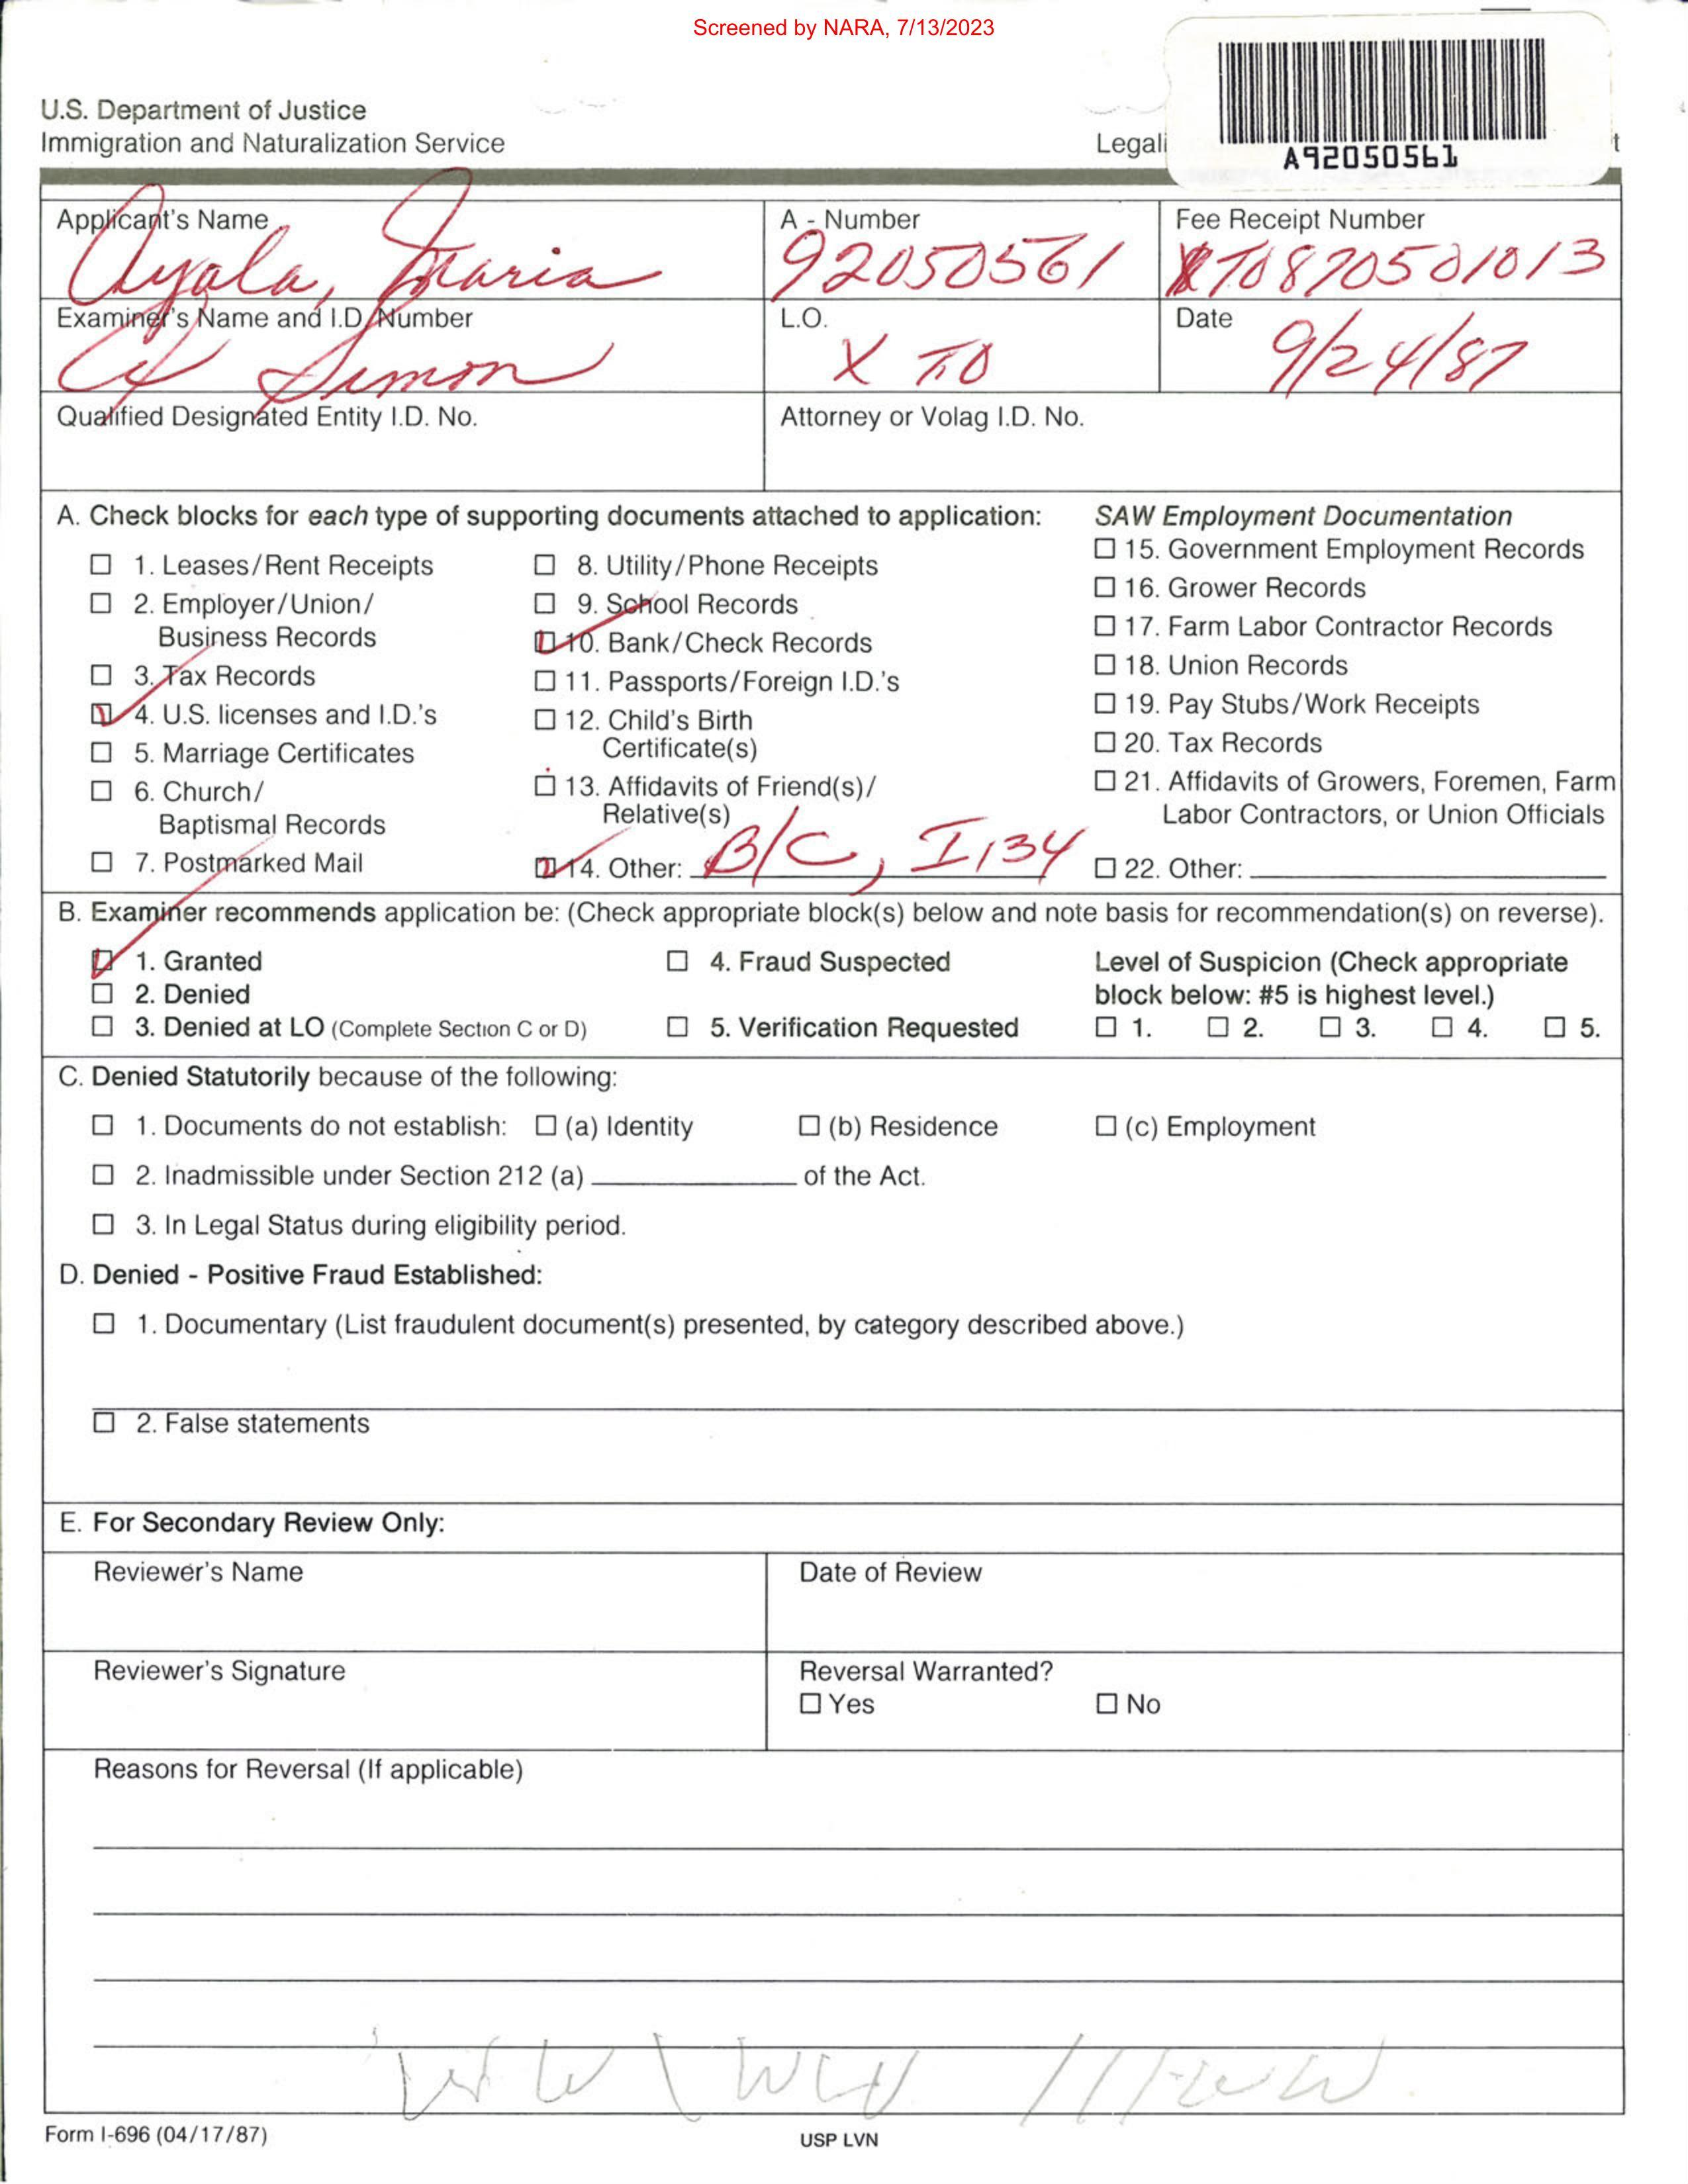 Screened by NARA, 7/13/2023
U.S. Department of Justice
Immigration and Naturalization Service
Legali
t
A92050561
Applicant's Name
Ayala, Maria
A - Number
92050561
Fee Receipt Number
XT0870501013
Examiner's Name and I.D. Number
Simon
L.O.
X TO
Date
9/24/87
Qualified Designated Entity I.D. No.
Attorney or Volag I.D. No.
A. Check blocks for each type of supporting documents attached to application:
☐ 1. Leases/Rent Receipts
☐ 2. Employer/Union/
Business Records
☐ 3. Tax Records
☑ 4. U.S. licenses and I.D.'s
☐ 5. Marriage Certificates
☐ 6. Church/
Baptismal Records
☐ 7. Postmarked Mail
☐ 8. Utility/Phone Receipts
☐ 9. School Records
☑ 10. Bank/Check Records
☐ 11. Passports/Foreign I.D.'s
☐ 12. Child's Birth
Certificate(s)
☐ 13. Affidavits of Friend(s)/
Relative(s)
☑ 14. Other: B/C, I,134
SAW Employment Documentation
☐ 15. Government Employment Records
☐ 16. Grower Records
☐ 17. Farm Labor Contractor Records
☐ 18. Union Records
☐ 19. Pay Stubs/Work Receipts
☐ 20. Tax Records
☐ 21. Affidavits of Growers, Foremen, Farm
Labor Contractors, or Union Officials
☐ 22. Other:
B. Examiner recommends application be: (Check appropriate block(s) below and note basis for recommendation(s) on reverse).
☑ 1. Granted
☐ 2. Denied
☐ 3. Denied at LO (Complete Section C or D)
☐ 4. Fraud Suspected
☐ 5. Verification Requested
Level of Suspicion (Check appropriate
block below: #5 is highest level.)
☐ 1. ☐ 2. ☐ 3. ☐ 4. ☐ 5.
C. Denied Statutorily because of the following:
☐ 1. Documents do not establish: ☐ (a) Identity ☐ (b) Residence ☐ (c) Employment
☐ 2. Inadmissible under Section 212 (a) of the Act.
☐ 3. In Legal Status during eligibility period.
D. Denied - Positive Fraud Established:
☐ 1. Documentary (List fraudulent document(s) presented, by category described above.)
☐ 2. False statements
E. For Secondary Review Only:
Reviewer's Name
Date of Review
Reviewer's Signature
Reversal Warranted?
☐ Yes ☐ No
Reasons for Reversal (If applicable)
Form I-696 (04/17/87)
USP LVN